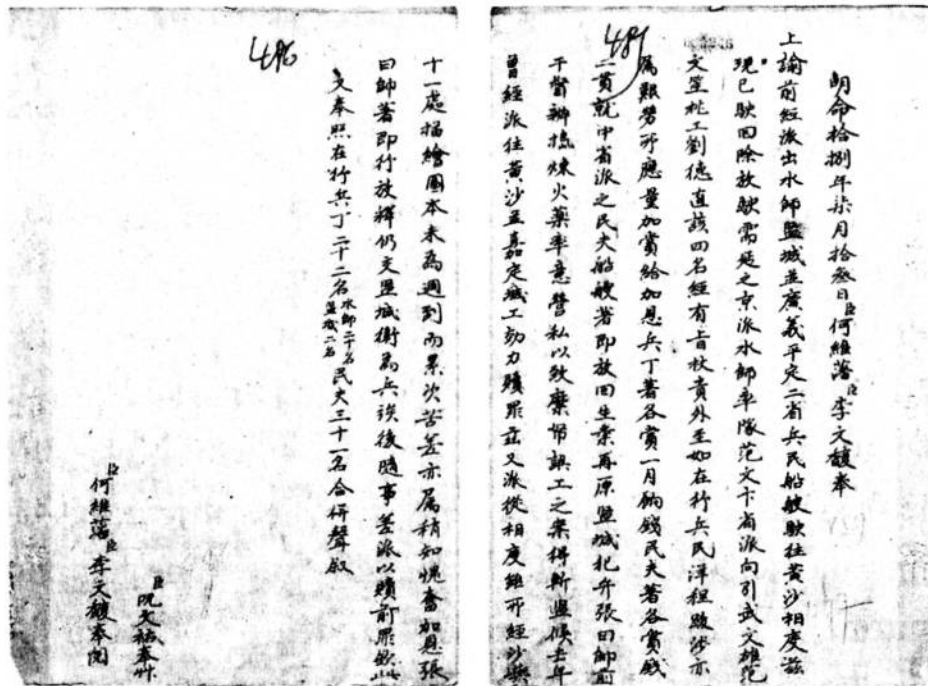 487
明命拾捌年柒月拾叁日臣何維藩臣李文馥奉
上諭前經派出水師監城並廣義平定二省兵民船艘駛往黃沙相度茲
現已駛回除放駛需延之京派水師率隊范文卞省派向引武文雄范
文笙桃工劉德直該四名經有旨杖責外至如在行兵民洋程跋涉亦
為艱勞所應量加賞給加恩兵丁著各賞一月餉錢民夫著各賞錢
二貫就中省派之民夫船艘著即放回生業再原監城犯弁張曰帥前
干督辦搗煉火藥率意營私以致糜帑誤工之案得斬監候去年
曾經派往黃沙並嘉定城工効力贖罪茲又派從相度雖所經沙嶼
486
十一處描繪圖本未為週到而累次苦差亦属稍知愧奮加恩張
曰帥著即行放釋仍交監城衛為兵俟後隨事差派以贖前罪欽此
支奉照在行兵丁二十二名水師二十名監城二名民夫三十一名合併聲叙
臣阮文祐奉艸
臣何維藩臣李文馥奉閱